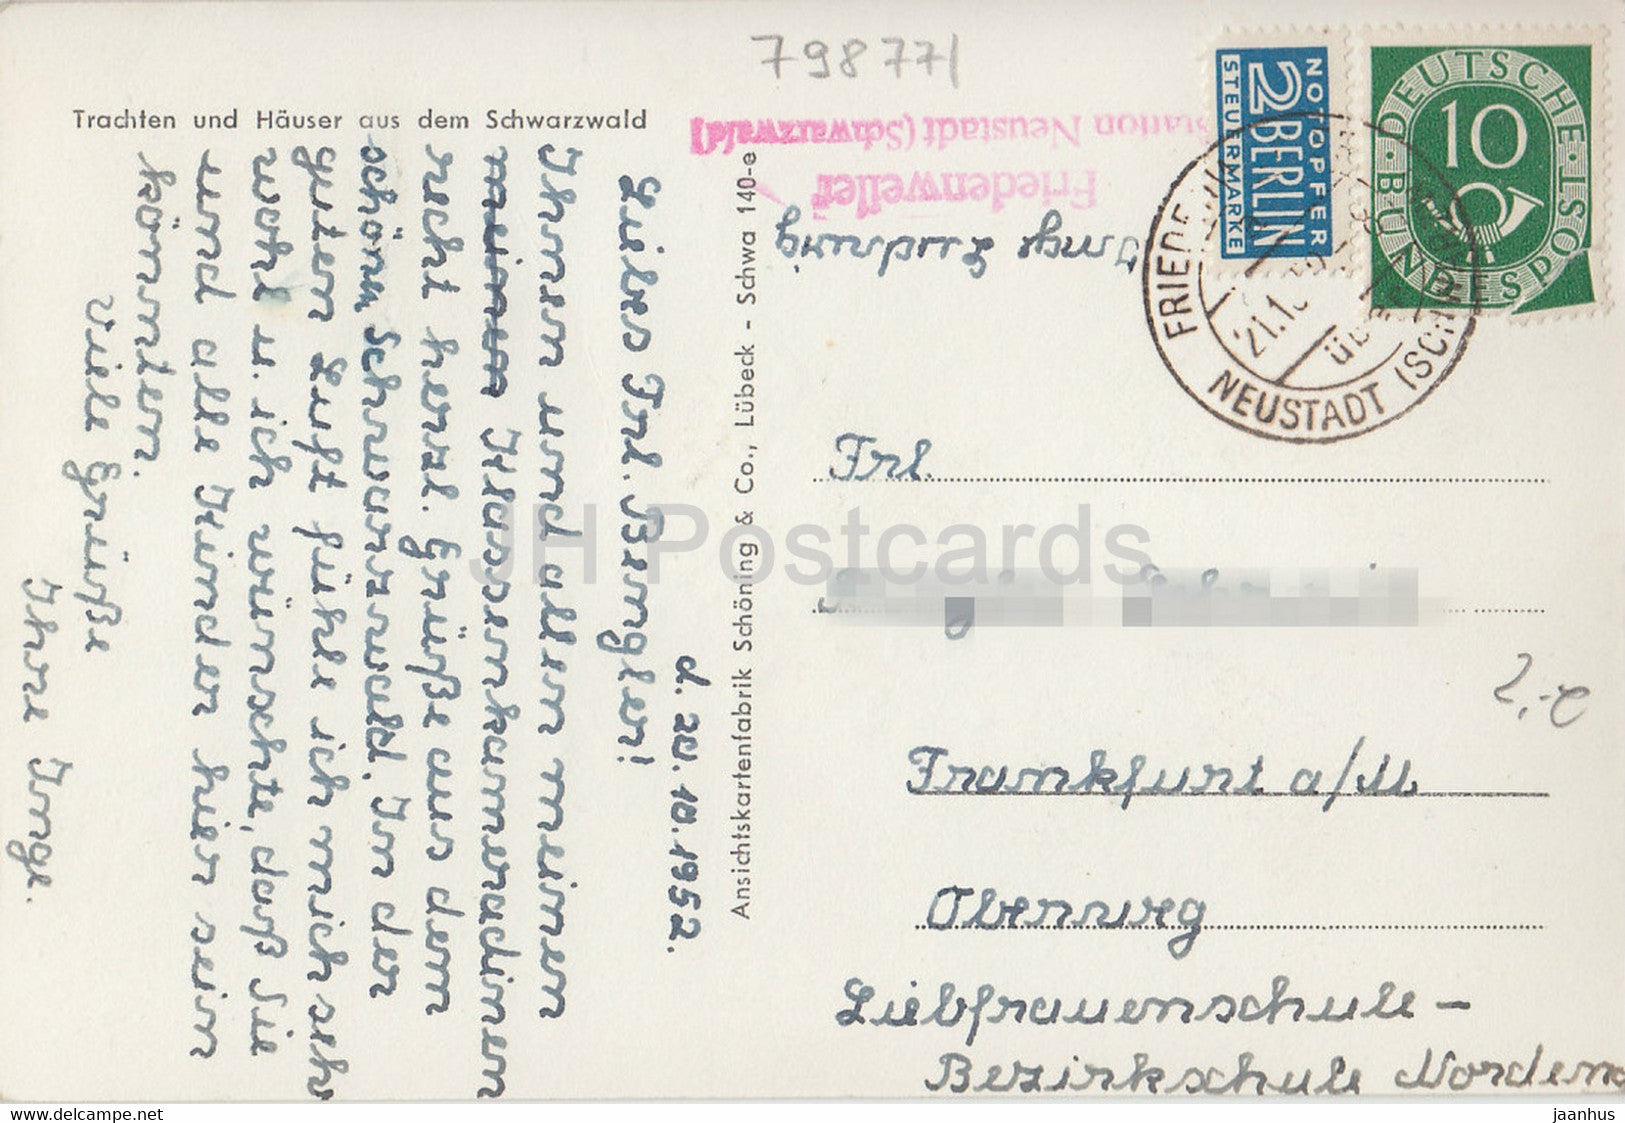 798771
Trachten und Häuser aus dem Schwarzwald
Station Neustadt (Schwarzwald)
Friedenweiler
NOTOPFER
2 BERLIN
STEUERMARKE
DEUTSCHE BUNDESPOST
10
NEUSTADT (SCH
21.10
d. 20.10.1952.
Liebes Frl. Bengler!
Ihnen und allen meinen
meinen Klassenkameradinnen
recht herzl. Grüße aus dem
schönen Schwarzwald. In der
guten Luft fühle ich mich sehr
wohl u. ich wünschte, daß Sie
und alle Kinder hier sein
könnten.
Viele Grüße
Ihre Inge.
Ansichtskartenfabrik Schöning & Co., Lübeck - Schwa 140-e
Frl.
Frankfurt a/M.
Obenweg
Liebfrauenschule -
Bezirkschule Nordend
2,-e
JH Postcards
www.delcampe.net
jaanhus